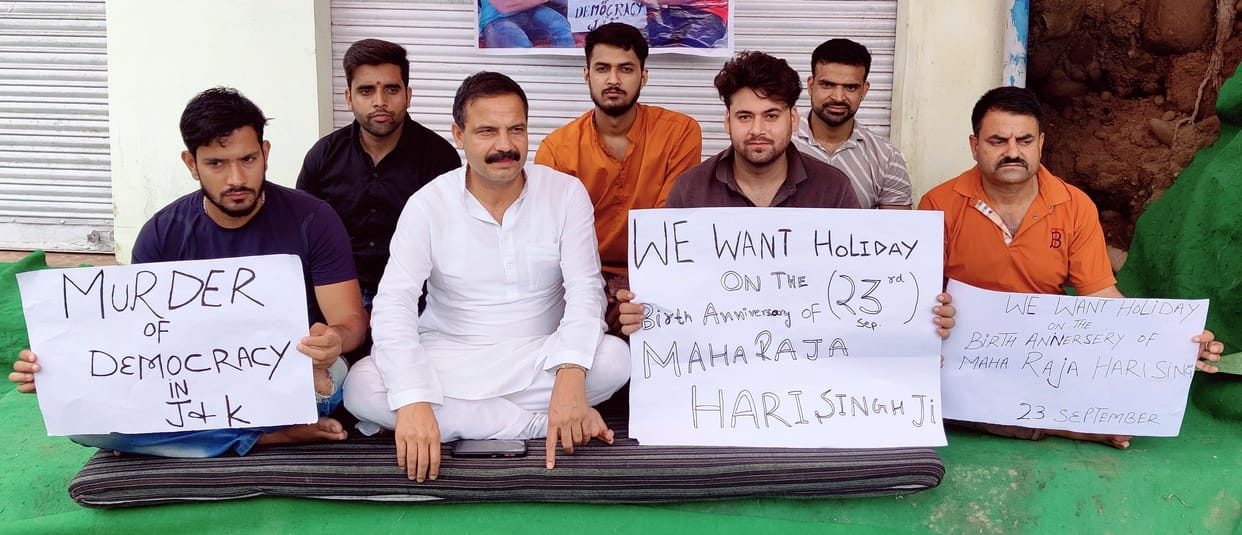 DEMOCRACY
J&K
MURDER
OF
DEMOCRACY
IN
J&K
WE WANT HOLIDAY
ON THE
Birth Anniversary of (23rd Sep.)
MAHARAJA
HARI SINGH Ji
B
WE WANT HOLIDAY
ON THE
BIRTH ANNERSERY OF
MAHA RAJA HARI SING
23 SEPTEMBER